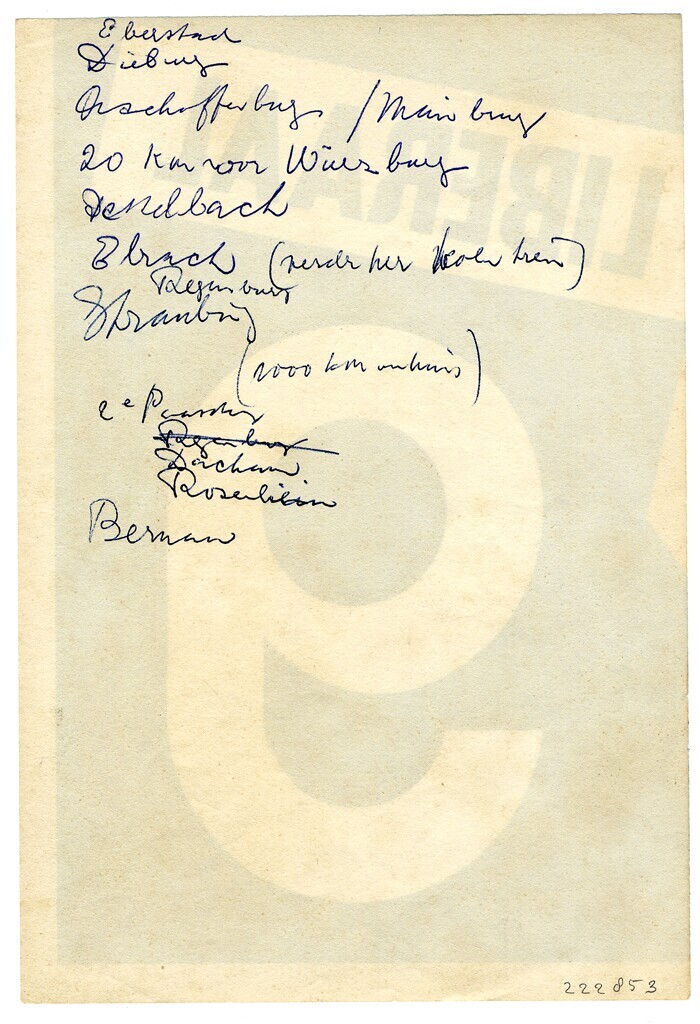 Eberstad
Dieburg
Aschaffenburg / Mainburg
20 km voor Würzburg
Dettelbach
Ebrach (verder per kolentrein)
Regensburg
Straubing
(1000 km van huis)
2e Paasdag
Regensburg
Dachau
Rosenheim
Bernau
LIBERAAL
9
222853